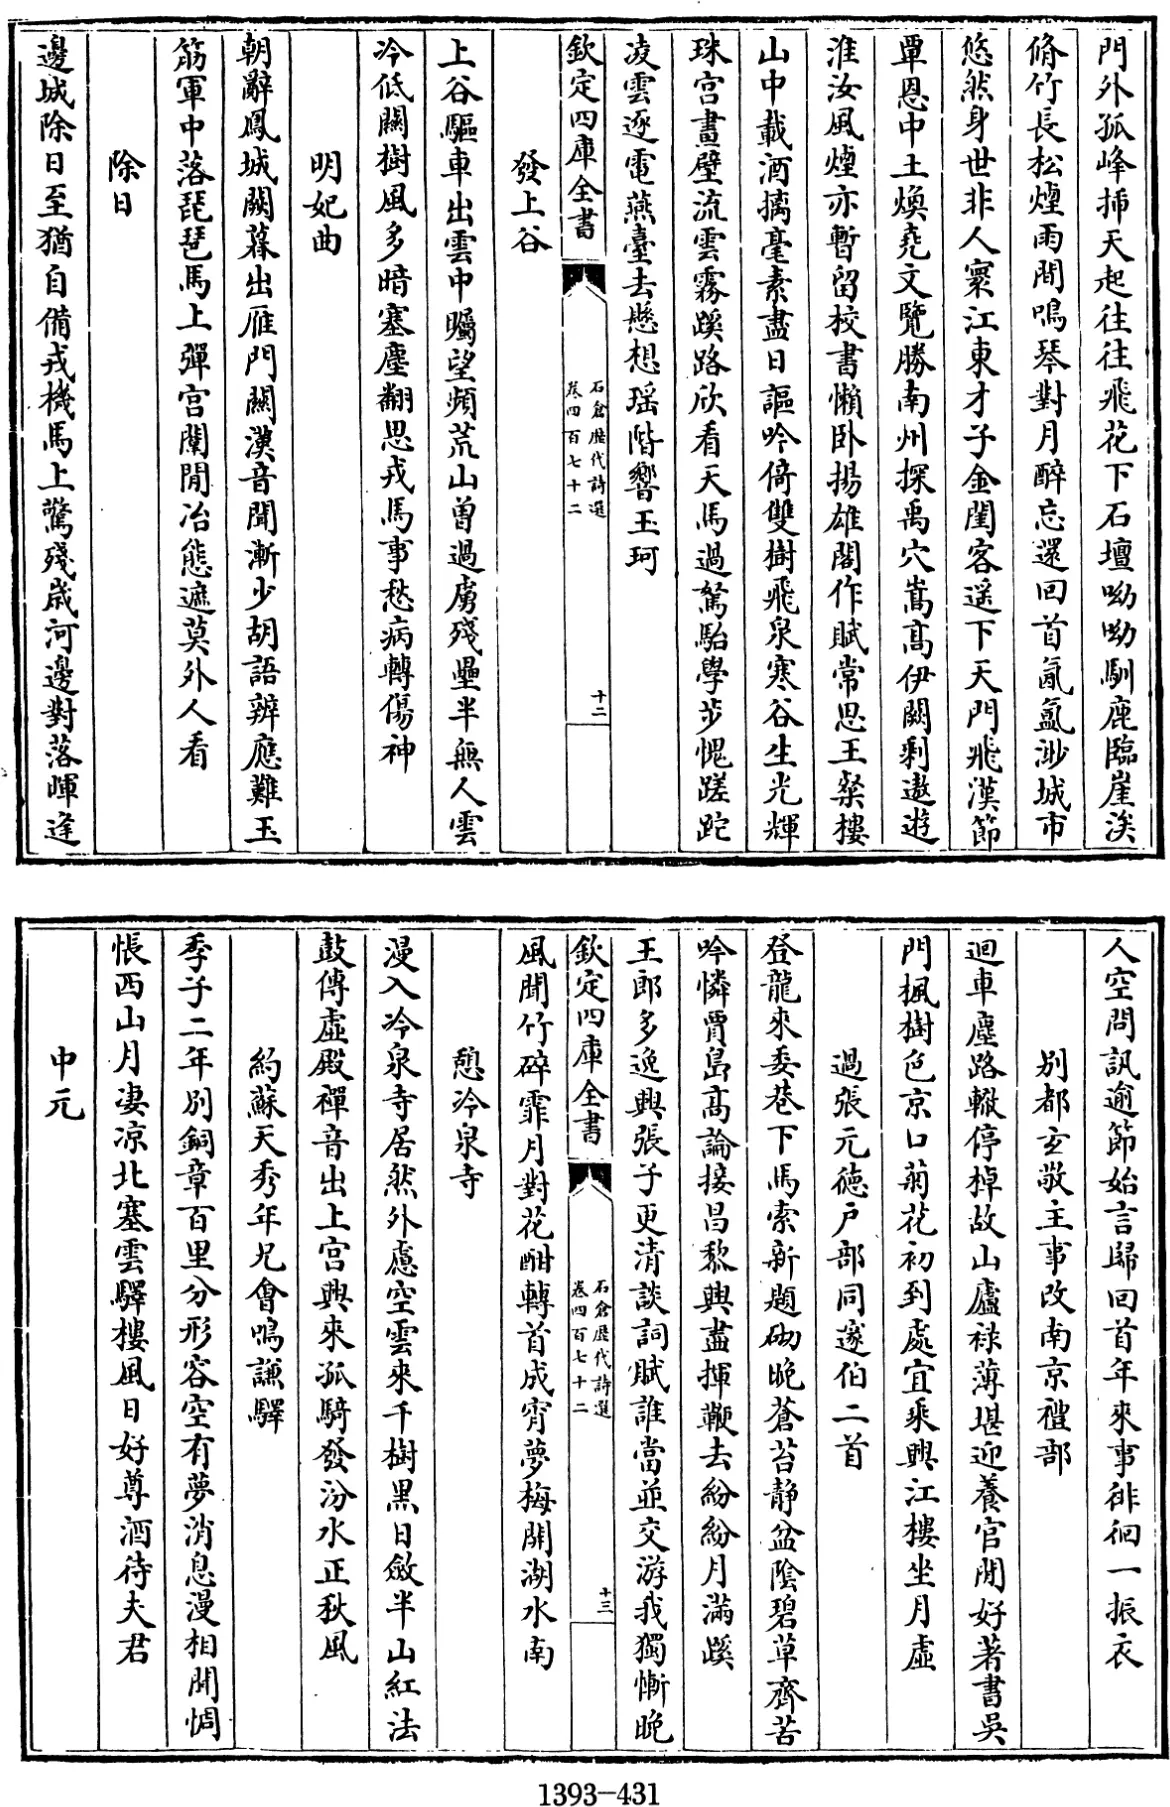 門外孤峰揷天起往往飛花下石壇呦呦馴鹿臨崖涘
脩竹長松煙雨間鳴琴對月醉忘還回首氤氳渺城市
悠然身世非人寰江東才子金閨客遥下天門飛漢節
覃恩中土煥堯文覽勝南州探禹穴嵩髙伊闕剩遨遊
淮汝風煙亦暫留校書懶卧揚雄閣作賦常思王粲樓
山中載酒摛毫素盡日謳吟倚雙樹飛泉寒谷生光輝
珠宫畫壁流雲霧蹊路欣看天馬過駑駘學步愧蹉跎
凌雲逐電燕臺去懸想瑶階響玉珂
欽定四庫全書
石倉歴代詩選
卷四百七十二
十二
發上谷
上谷驅車出雲中矚望頻荒山曽過虜殘壘半無人雲
冷低關樹風多暗塞塵翻思戎馬事愁病轉傷神
明妃曲
朝辭鳳城闕暮出雁門關漢音聞漸少胡語辨應難玉
筯軍中落琵琶馬上彈宫闈閒冶態遮莫外人看
除日
邊城除日至猶自備戎機馬上驚殘歳河邊對落暉逢
人空問訊逾節始言歸回首年來事徘徊一振衣
别都玄敬主事改南京禮部
迴車塵路轍停棹故山廬禄薄堪迎養官閒好著書吳
門楓樹色京口菊花初到處宜乘興江樓坐月虛
過張元徳户部同邃伯二首
登龍來委巷下馬索新題砌晚蒼苔静盆陰碧草齊苦
吟憐賈島高論接昌黎興盡揮鞭去紛紛月滿蹊
王郎多逸興張子更清談詞賦誰當並交游我獨慚晚
欽定四庫全書
石倉歴代詩選
卷四百七十二
十三
風聞竹碎霏月對花酣轉首成宵夢梅開湖水南
憩冷泉寺
漫入冷泉寺居然外慮空雲來千樹黒日斂半山紅法
鼓傳虛殿禪音出上宫興來孤騎發汾水正秋風
約蘇天秀年兄會鳴謙驛
季子二年别銅章百里分形容空有夢消息漫相聞惆
悵西山月凄涼北塞雲驛樓風日好尊酒待夫君
中元
1393-431